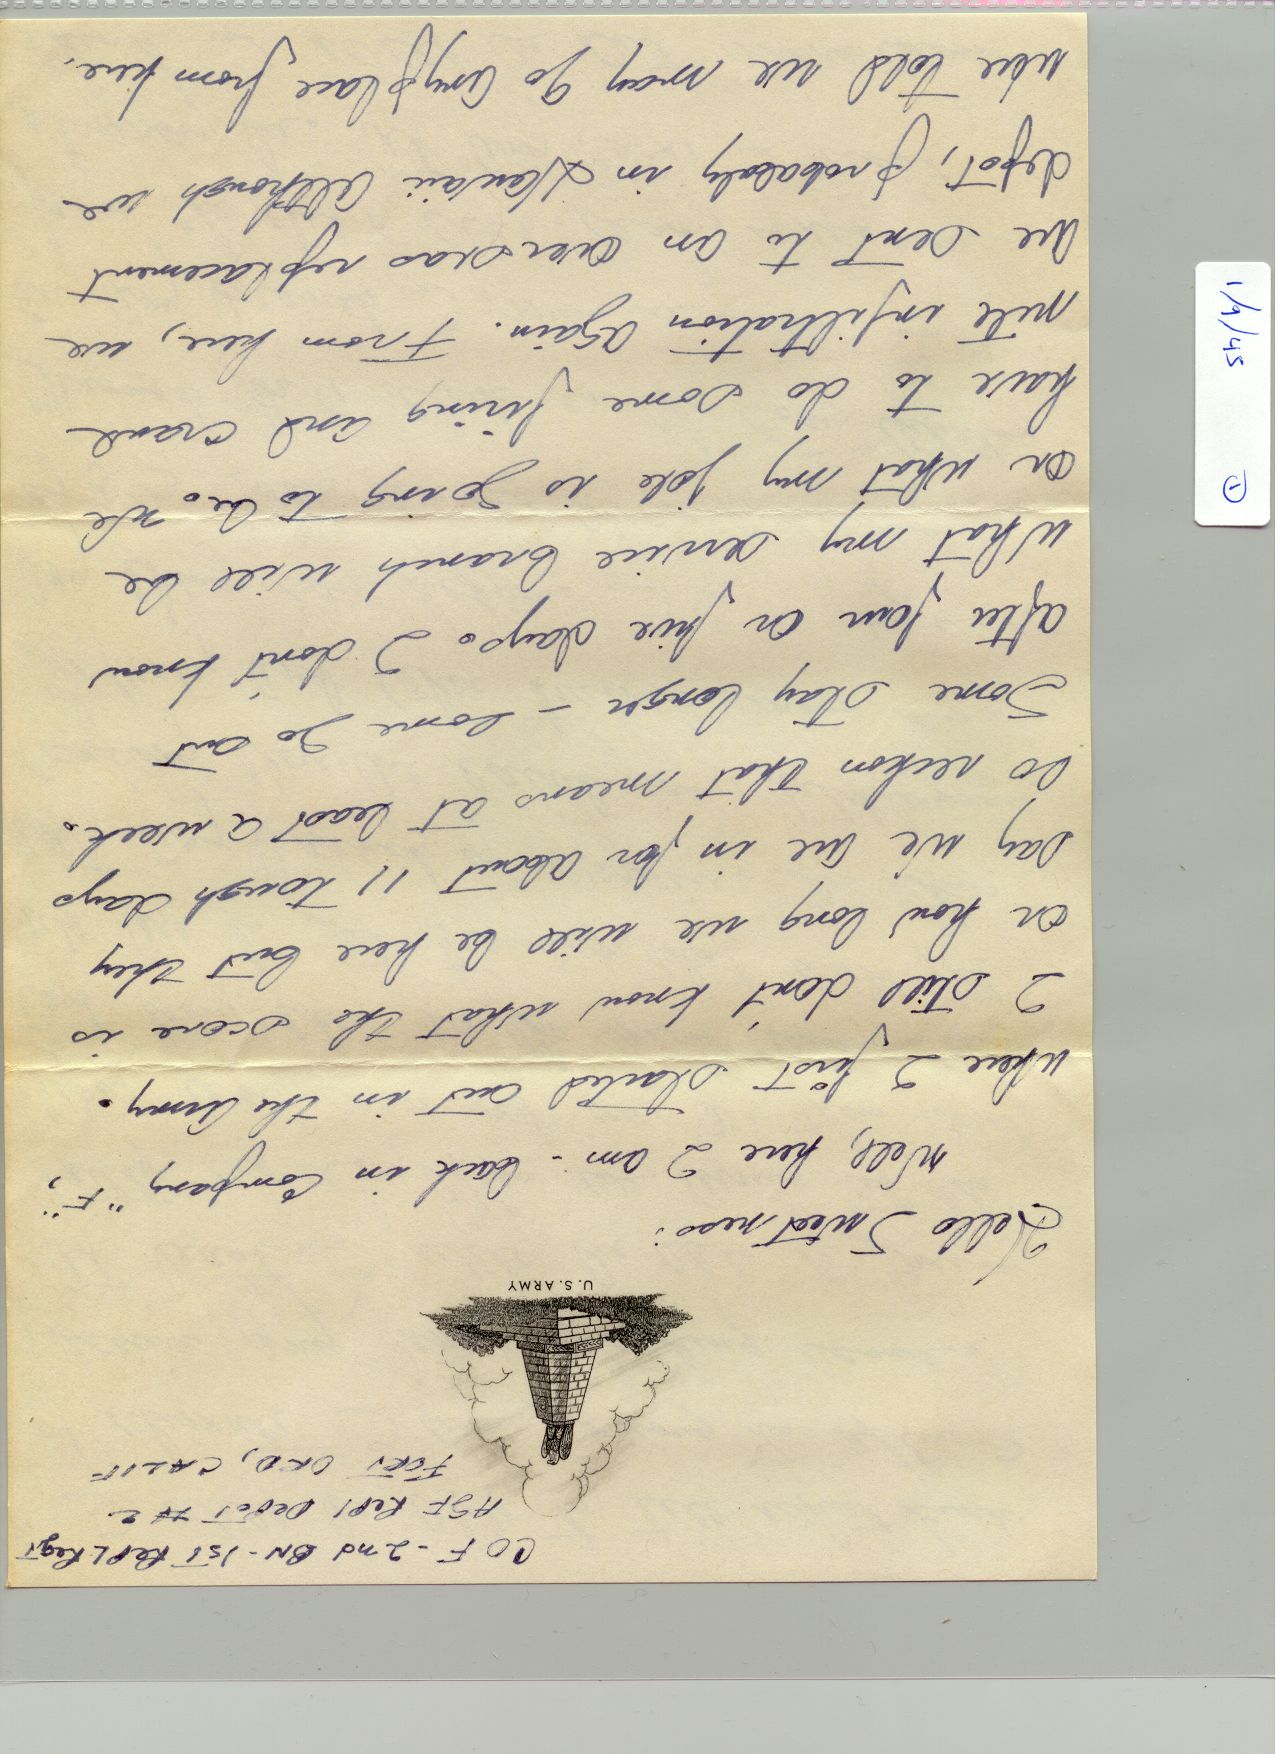 CO F - 2nd BN - 1st REPL Regt
ASF Repl Depot #2
FORT ORD, CALIF
U.S. ARMY
Hello Sweetness:
Well, here I am - back in Company "F",
where I first started out in the Army.
I still don't know what the score is
or how long we will be here but they
say we are in for about 11 tough days
so reckon that means at least a week.
Some stay longer - some go out
after four or five days. I don't know
what my service branch will be
or what my job is going to be. We
have to do some firing and crawl
nite infiltration again. From here, we
are sent to an overseas replacement
depot, probably in Hawaii although we
were told we may go anyplace from here.
1/9/45 ①